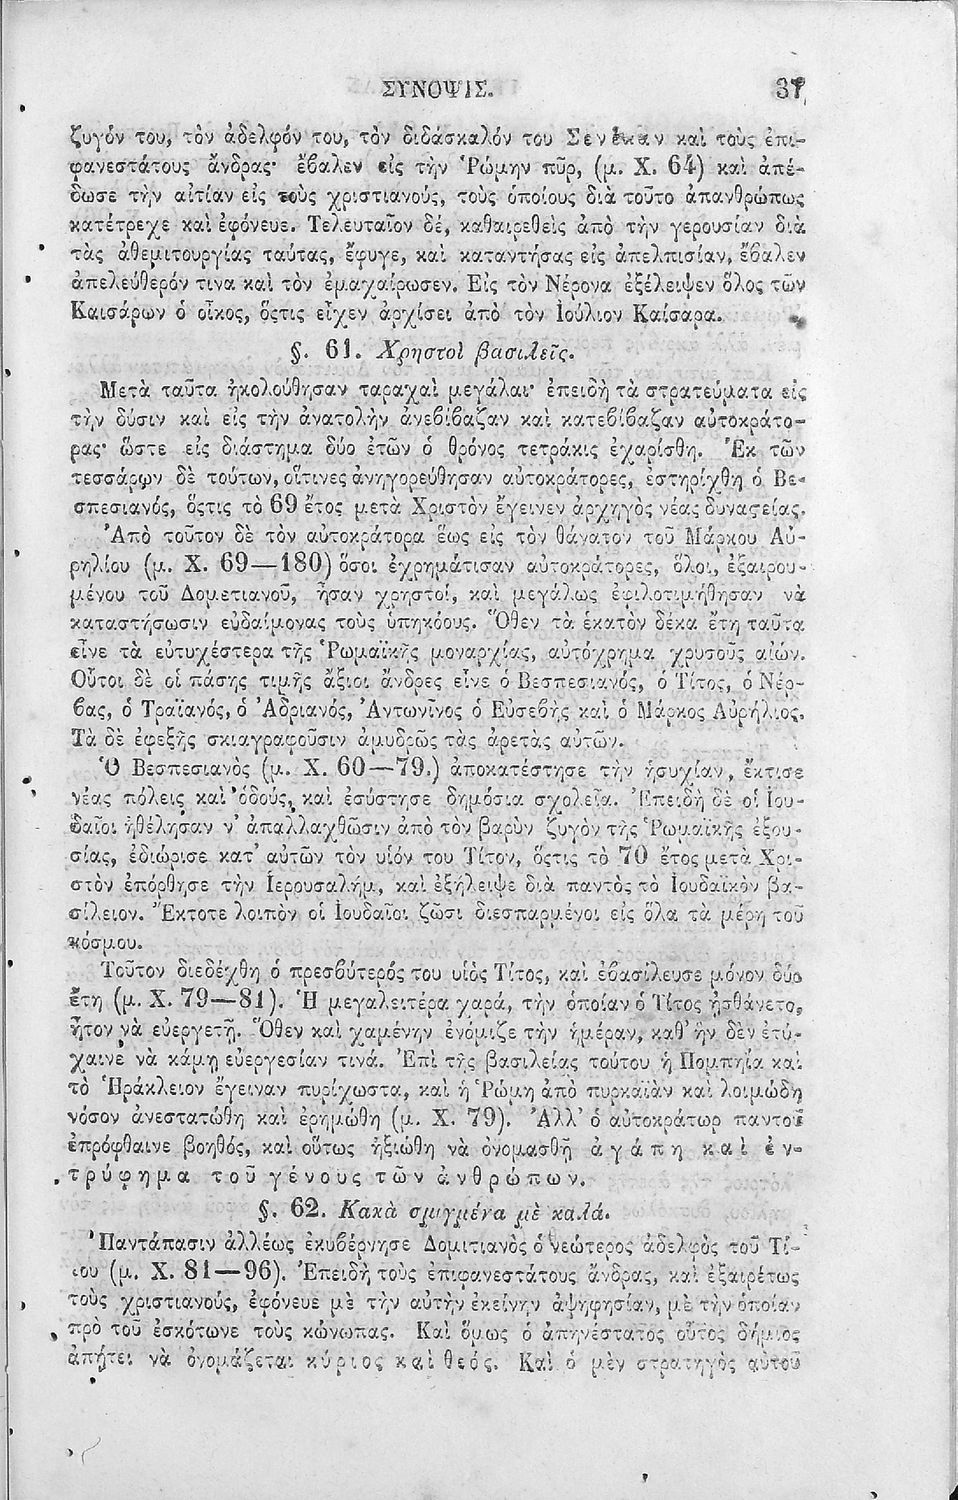 ΣΥΝΟΨΙΣ. 37
ζυγόν του, τὸν ἀδελφόν του, τὸν διδάσκαλόν του Σενέκαν καὶ τοὺς ἐπι-
φανεστάτους ἄνδρας· ἔβαλεν εἰς τὴν Ῥώμην πῦρ, (μ. Χ. 64) καὶ ἀπέ-
δωσε τὴν αἰτίαν εἰς τοὺς χριστιανούς, τοὺς ὁποίους διὰ τοῦτο ἀπανθρώπως
κατέτρεχε καὶ ἐφόνευε. Τελευταῖον δέ, καθαιρεθεὶς ἀπὸ τὴν γερουσίαν διὰ
τὰς ἀθεμιτουργίας ταύτας, ἔφυγε, καὶ καταντήσας εἰς ἀπελπισίαν, ἔβαλεν
ἀπελεύθερόν τινα καὶ τὸν ἐμαχαίρωσεν. Εἰς τὸν Νέρονα ἐξέλειψεν ὅλος τῶν
Καισάρων ὁ οἶκος, ὅςτις εἶχεν ἀρχίσει ἀπὸ τὸν Ἰούλιον Καίσαρα.
§. 61. Χρηστοὶ βασιλεῖς.
Μετὰ ταῦτα ἠκολούθησαν ταραχαὶ μεγάλαι· ἐπειδὴ τὰ στρατεύματα εἰς
τὴν δύσιν καὶ εἰς τὴν ἀνατολὴν ἀνεβίβαζαν καὶ κατεβίβαζαν αὐτοκράτο-
ρας· ὥστε εἰς διάστημα δύο ἐτῶν ὁ θρόνος τετράκις ἐχαρίσθη. Ἐκ τῶν
τεσσάρων δὲ τούτων, οἵτινες ἀνηγορεύθησαν αὐτοκράτορες, ἐστηρίχθη ὁ Βε-
σπεσιανός, ὅςτις τὸ 69 ἔτος μετὰ Χριστὸν ἔγεινεν ἀρχηγὸς νέας δυναςείας.
Ἀπὸ τοῦτον δὲ τὸν αὐτοκράτορα ἕως εἰς τὸν θάνατον τοῦ Μάρκου Αὐ-
ρηλίου (μ. Χ. 69—180) ὅσοι ἐχρημάτισαν αὐτοκράτορες, ὅλοι, ἐξαιρου-
μένου τοῦ Δομετιανοῦ, ἦσαν χρηστοί, καὶ μεγάλως ἐφιλοτιμήθησαν νὰ
καταστήσωσιν εὐδαίμονας τοὺς ὑπηκόους. Ὅθεν τὰ ἑκατὸν δέκα ἔτη ταῦτα
εἶνε τὰ εὐτυχέστερα τῆς Ῥωμαϊκῆς μοναρχίας, αὐτόχρημα χρυσοῦς αἰών.
Οὗτοι δὲ οἱ πάσης τιμῆς ἄξιοι ἄνδρες εἶνε ὁ Βεσπεσιανός, ὁ Τίτος, ὁ Νέρ-
βας, ὁ Τραϊανός, ὁ Ἀδριανός, Ἀντωνῖνος ὁ Εὐσεβὴς καὶ ὁ Μάρκος Αὐρήλιος.
Τὰ δὲ ἐφεξῆς σκιαγραφοῦσιν ἀμυδρῶς τὰς ἀρετὰς αὐτῶν.
Ὁ Βεσπεσιανὸς (μ. Χ. 60—79.) ἀποκατέστησε τὴν ἡσυχίαν, ἔκτισε
νέας πόλεις καὶ ὁδούς, καὶ ἐσύστησε δημόσια σχολεῖα. Ἐπειδὴ δὲ οἱ Ἰου-
δαῖοι ἠθέλησαν ν' ἀπαλλαχθῶσιν ἀπὸ τὸν βαρὺν ζυγὸν τῆς Ῥωμαϊκῆς ἐξου-
σίας, ἐδιώρισε κατ' αὐτῶν τὸν υἱόν του Τίτον, ὅςτις τὸ 70 ἔτος μετὰ Χρι-
στὸν ἐπόρθησε τὴν Ἱερουσαλήμ, καὶ ἐξήλειψε διὰ παντὸς τὸ Ἰουδαϊκὸν βα-
σίλειον. Ἔκτοτε λοιπὸν οἱ Ἰουδαῖοι ζῶσι διεσπαρμένοι εἰς ὅλα τὰ μέρη τοῦ
κόσμου.
Τοῦτον διεδέχθη ὁ πρεσβύτερός του υἱὸς Τίτος, καὶ ἐβασίλευσε μόνον δύο
ἔτη (μ. Χ. 79—81). Ἡ μεγαλειτέρα χαρά, τὴν ὁποίαν ὁ Τίτος ᾐσθάνετο,
ἦτον νὰ εὐεργετῇ. Ὅθεν καὶ χαμένην ἐνόμιζε τὴν ἡμέραν, καθ' ἣν δὲν ἐτύ-
χαινε νὰ κάμῃ εὐεργεσίαν τινά. Ἐπὶ τῆς βασιλείας τούτου ἡ Πομπηία καὶ
τὸ Ἡράκλειον ἔγειναν πυρίχωστα, καὶ ἡ Ῥώμη ἀπὸ πυρκαϊὰν καὶ λοιμώδη
νόσον ἀνεστατώθη καὶ ἐρημώθη (μ. Χ. 79). Ἀλλ' ὁ αὐτοκράτωρ παντοῦ
ἐπρόφθαινε βοηθός, καὶ οὕτως ἠξιώθη νὰ ὀνομασθῇ ἀγάπη καὶ ἐν-
τρύφημα τοῦ γένους τῶν ἀνθρώπων.
§. 62. Κακὰ σμιγμένα μὲ καλά.
Παντάπασιν ἀλλέως ἐκυβέρνησε Δομιτιανὸς ὁ νεώτερος ἀδελφὸς τοῦ Τί-
του (μ. Χ. 81—96). Ἐπειδὴ τοὺς ἐπιφανεστάτους ἄνδρας, καὶ ἐξαιρέτως
τοὺς χριστιανούς, ἐφόνευε μὲ τὴν αὐτὴν ἐκείνην ἀψηφησίαν, μὲ τὴν ὁποίαν
πρὸ τοῦ ἐσκότωνε τοὺς κώνωπας. Καὶ ὅμως ὁ ἀπηνέστατος οὗτος δήμιος
ἀπῄτει νὰ ὀνομάζεται κύριος καὶ θεός. Καὶ ὁ μὲν στρατηγὸς αὐτοῦ